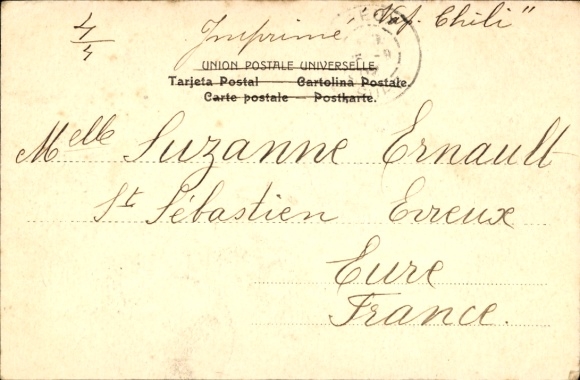 4/4 Imprimé "Vap. Chili"
UNION POSTALE UNIVERSELLE.
Tarjeta Postal — Cartolina Postale.
Carte postale — Postkarte.
Melle Suzanne Ernault
St Sébastien Evreux
Eure
France.